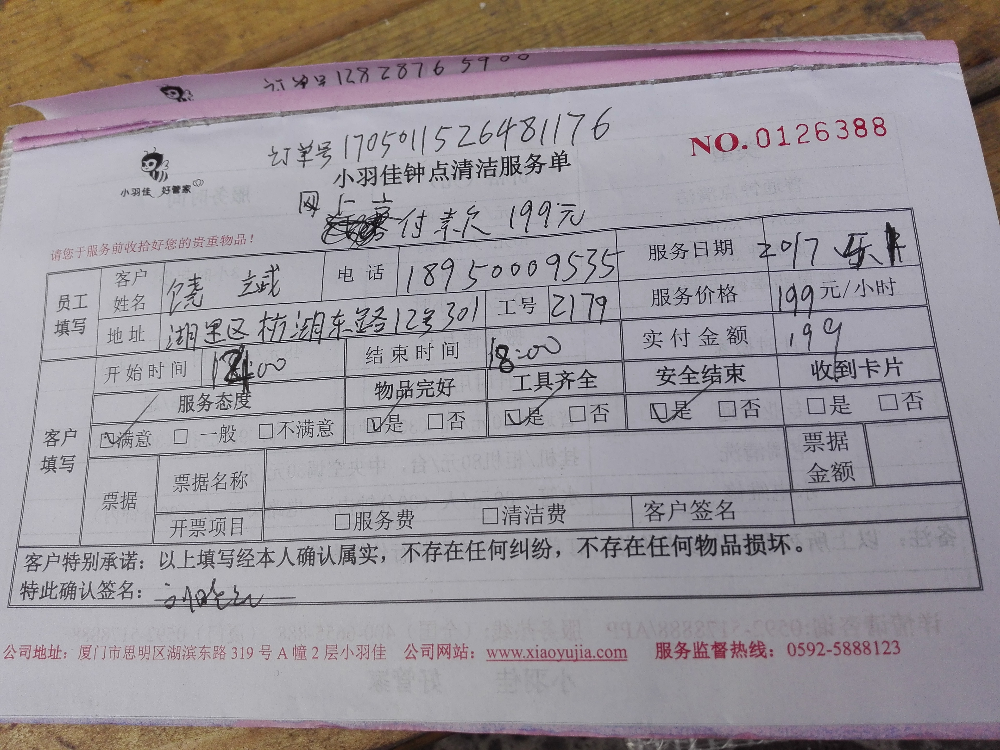 1282876 5900
订单号1705011526481176
NO.0126388
小羽佳 好管家
小羽佳钟点清洁服务单
网上
付款 199元
请您于服务前收拾好您的贵重物品！
员工填写 客户姓名 饶 斌 电 话 18950009535 服务日期 2017
地址 湖里区枋湖东路12号301 工号 2179 服务价格 199元/小时
开始时间 :00 结束时间 18:00 实付金额 199
服务态度 物品完好 工具齐全 安全结束 收到卡片
客户填写 ☑满意 □一般 □不满意 ☑是 □否 ☑是 □否 ☑是 □否 □是 □否
票据 票据名称 票据金额
开票项目 □服务费 □清洁费 客户签名
客户特别承诺：以上填写经本人确认属实，不存在任何纠纷，不存在任何物品损坏。
特此确认签名：
公司地址：厦门市思明区湖滨东路 319 号 A 幢 2 层小羽佳 公司网站：www.xiaoyujia.com 服务监督热线：0592-5888123